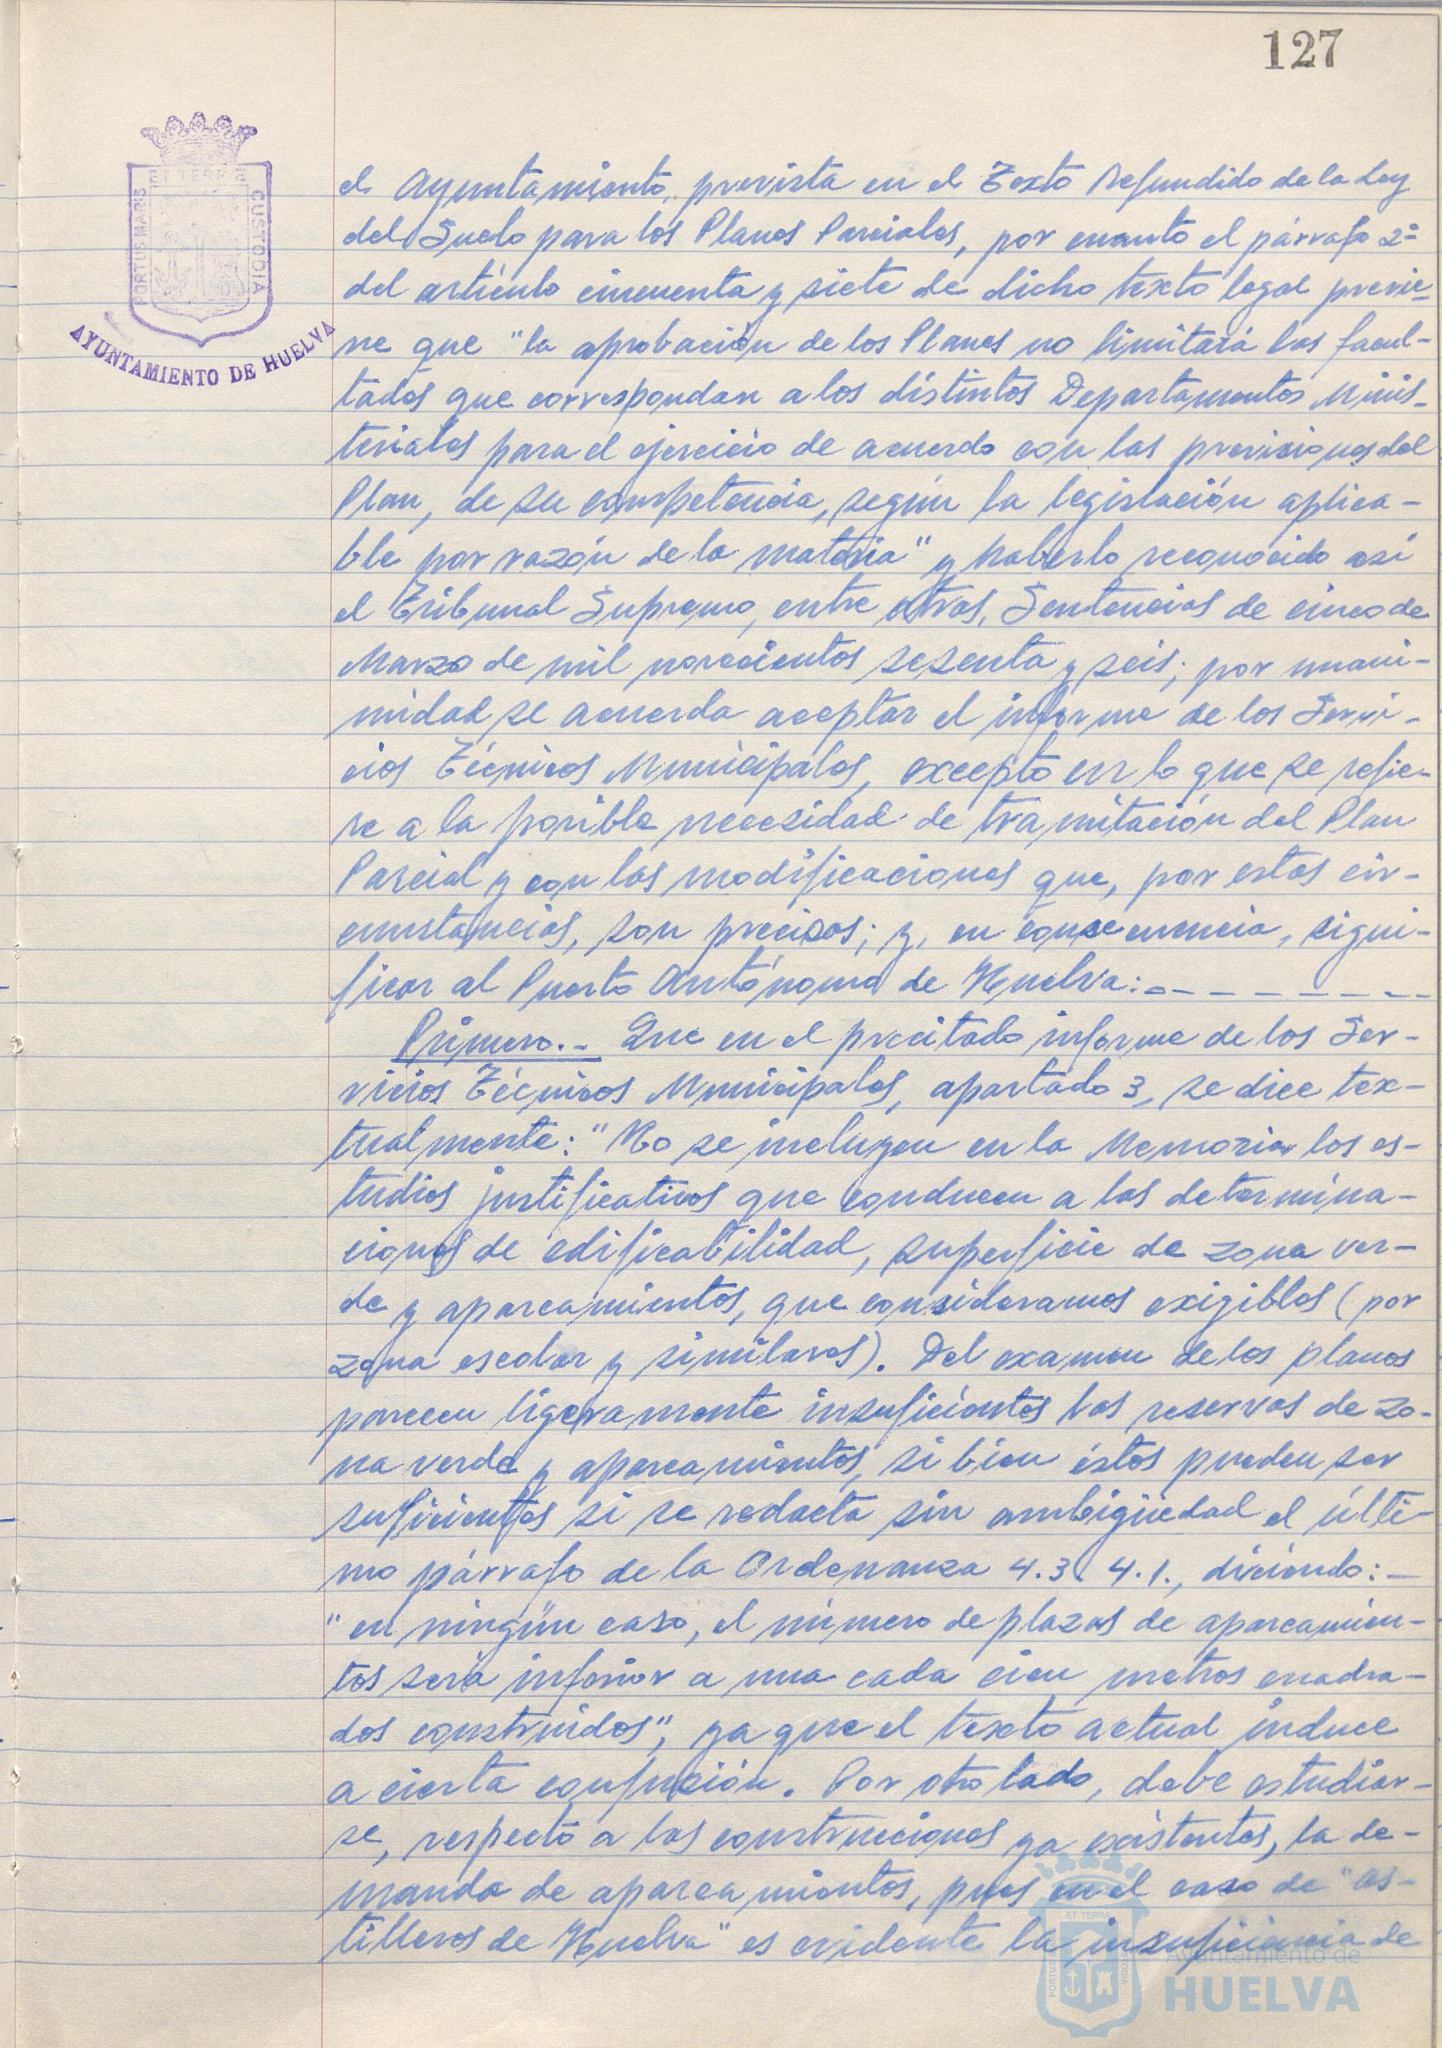 127
ET TERRE
PORTUS MARIS
CUSTODIA
AYUNTAMIENTO DE HUELVA
el Ayuntamiento, prevista en el Texto Refundido de la Ley
del Suelo para los Planes Parciales, por cuanto el párrafo 2º
del artículo cincuenta y siete de dicho texto legal previe-
ne que "la aprobación de los Planes no limitará las facul-
tades que correspondan a los distintos Departamentos Minis-
teriales para el ejercicio de acuerdo con las previsiones del
Plan, de su competencia, según la legislación aplica-
ble por razón de la materia" y haberlo reconocido así
el Tribunal Supremo, entre otras, Sentencias de cinco de
Marzo de mil novecientos sesenta y seis; por unani-
midad se acuerda aceptar el informe de los Servi-
cios Técnicos Municipales, excepto en lo que se refie-
re a la posible necesidad de tramitación del Plan
Parcial y con las modificaciones que, por estas cir-
cunstancias, son precisas; y, en consecuencia, signi-
ficar al Puerto Autónomo de Huelva:- - - - - - - -
Primero.- Que en el precitado informe de los Ser-
vicios Técnicos Municipales, apartado 3, se dice tex-
tualmente: "No se incluyen en la Memoria los es-
tudios justificativos que conducen a las determina-
ciones de edificabilidad, superficie de zona ver-
de y aparcamientos, que consideramos exigibles (por
zona escolar y similares). Del examen de los planos
parecen ligeramente insuficientes las reservas de zo-
na verde y aparcamientos, si bien éstos pueden ser
suficientes si se redacta sin ambigüedad el últi-
mo párrafo de la Ordenanza 4.3.4.1., diciendo:-
"en ningún caso, el número de plazas de aparcamien-
tos será inferior a una cada cien metros cuadra-
dos construidos", ya que el texto actual induce
a cierta confusión. Por otro lado, debe estudiar-
se, respecto a las construcciones ya existentes, la de-
manda de aparcamientos, pues en el caso de "As-
tilleros de Huelva" es evidente la insuficiencia de
ET TERRA
PORTUS
CUSTODIA
Ayuntamiento de
HUELVA